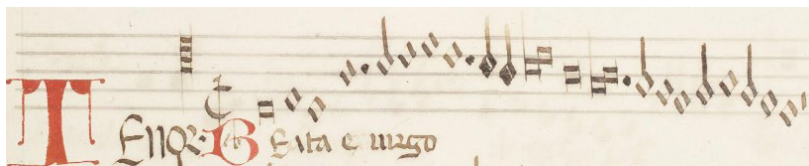 Tenor Beata es virgo